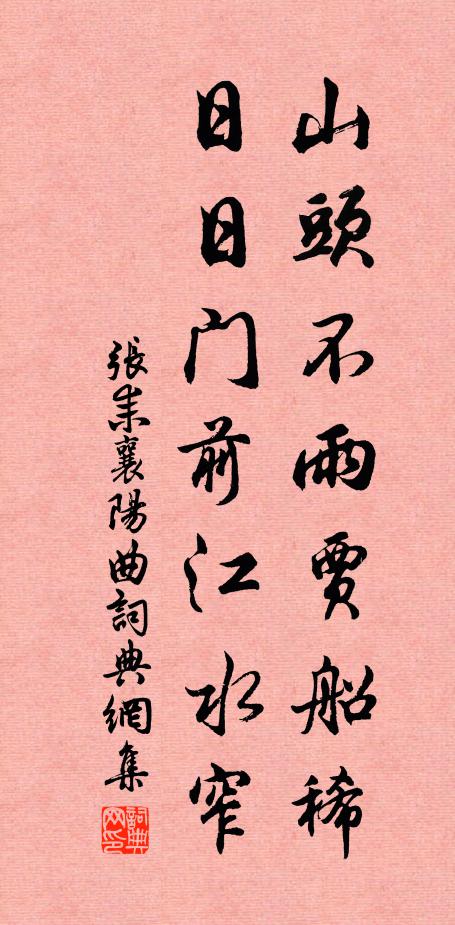 山頭不雨賈船稀
日日門前江水窄
張耒襄陽曲詞典網集
詞典网印